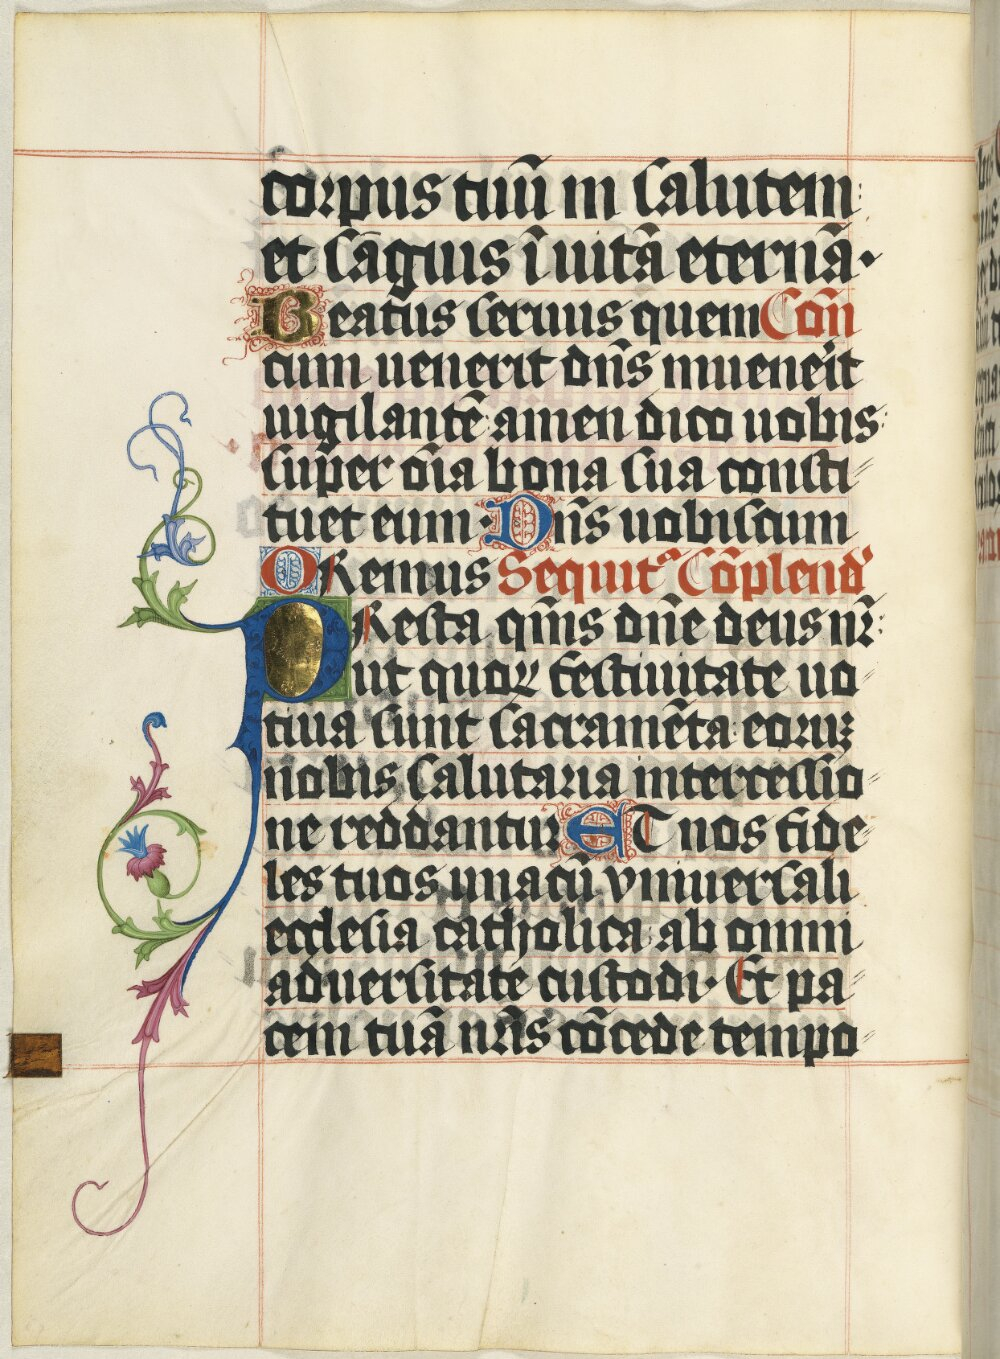 corpus tuū in salutem
et sāguis ī uitā eternā.
Beatus seruus quem Com̄
cum uenerit dn̄s inuenēit
uigilantē amen dico uobis
super oīa bona sua consti
tuet eum. Dn̄s uobiscum
ORemus Sequitᵃ Cōplend'
PResta qm̄s dn̄e deus nr̄
ut quoꝝ festiuitate uo
tiua sunt sacramēta eoruꝫ
nobis salutaria intercessio
ne reddantur ET nos fide
les tuos unacū vniuersali
ecclesia catholica ab omni
aduersitate custodi. Et pa
cem tuā nr̄is cōcede tempo